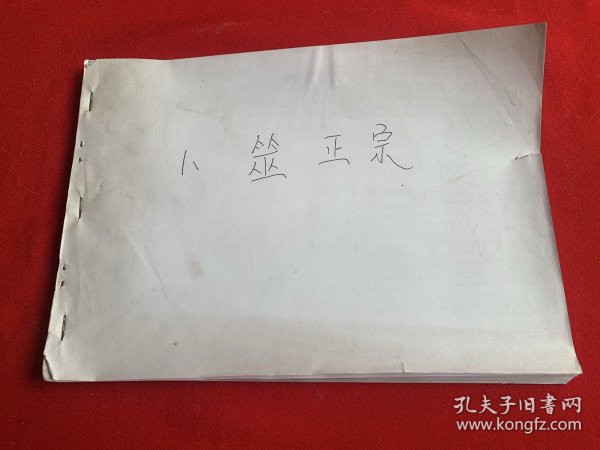 卜筮正宗
孔夫子旧書网
www.kongfz.com